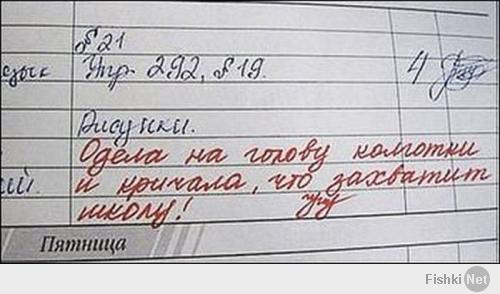 §21
язык Упр. 292, §19. 4
Рисунки.
Одела на голову колготки
и кричала, что захватит
школу!
Пятница
Fishki Net